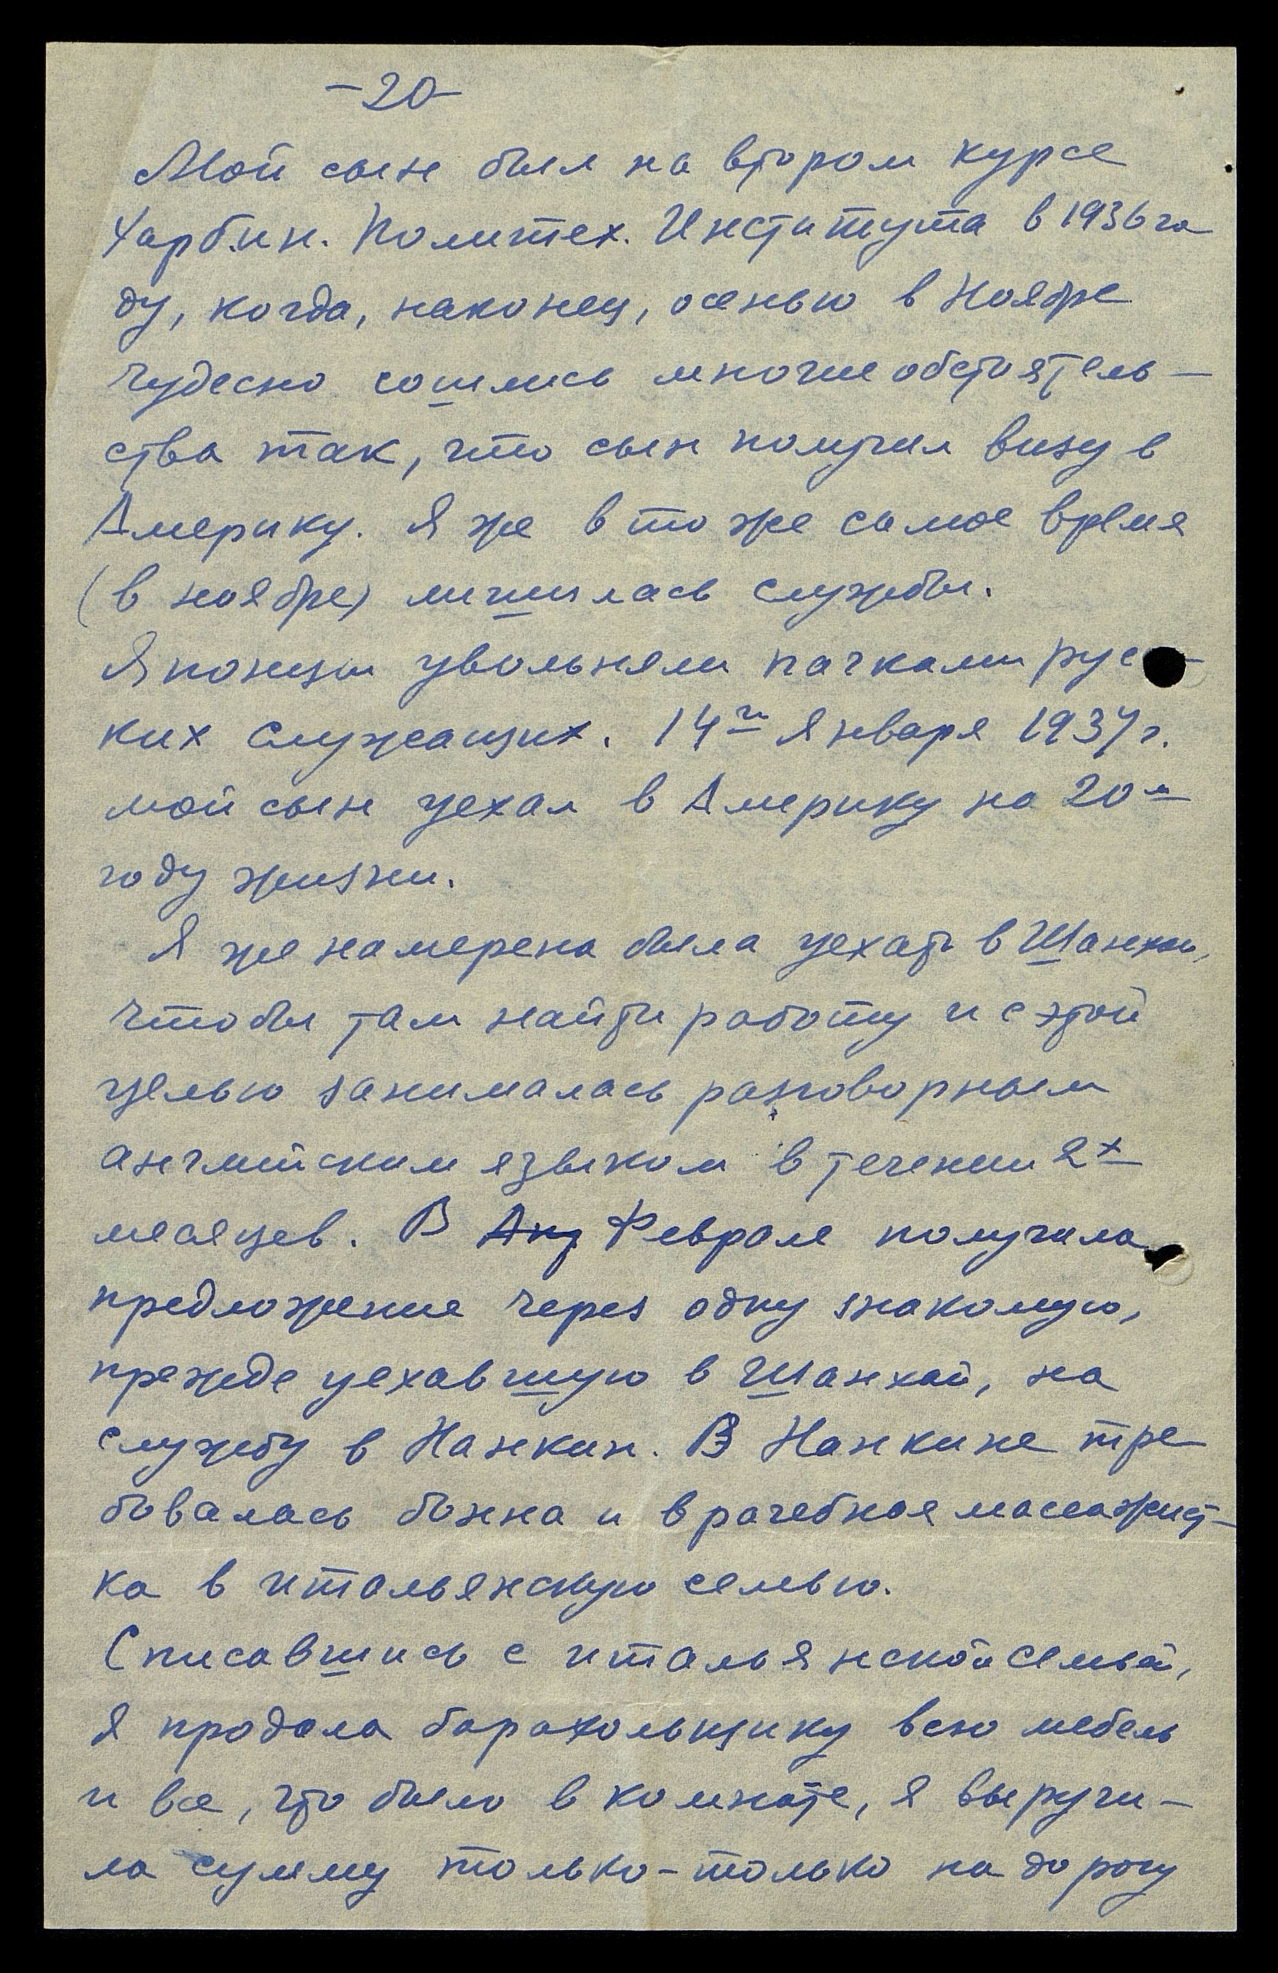 -20-
Мой сын был на втором курсе
Харбин. Политех. Института в 1936 го
ду, когда, наконец, осенью в Ноябре
чудесно сошлись многие обстоятель-
ства так, что сын получил визу в
Америку. Я же в то же самое время
(в ноябре) лишилась службы.
Японцы увольняли пачками рус-
ких служащих. 14го Января 1937 г.
мой сын уехал в Америку на 20м
году жизни.
Я же намерена была уехать в Шанхай,
чтобы там найти работу и с этой
целью занималась разговорным
английским языком в течении 2х
месяцев. В Апр Феврале получила
предложение через одну знакомую,
прежде уехавшую в Шанхай, на
службу в Нанкин. В Нанкине тре
бовалась бонна и врачебная массажист-
ка в итальянскую семью.
Списавшись с итальянской семьей,
я продала барахольщику всю мебель
и все, что было в комнате, я выручи-
ла сумму только-только на дорогу